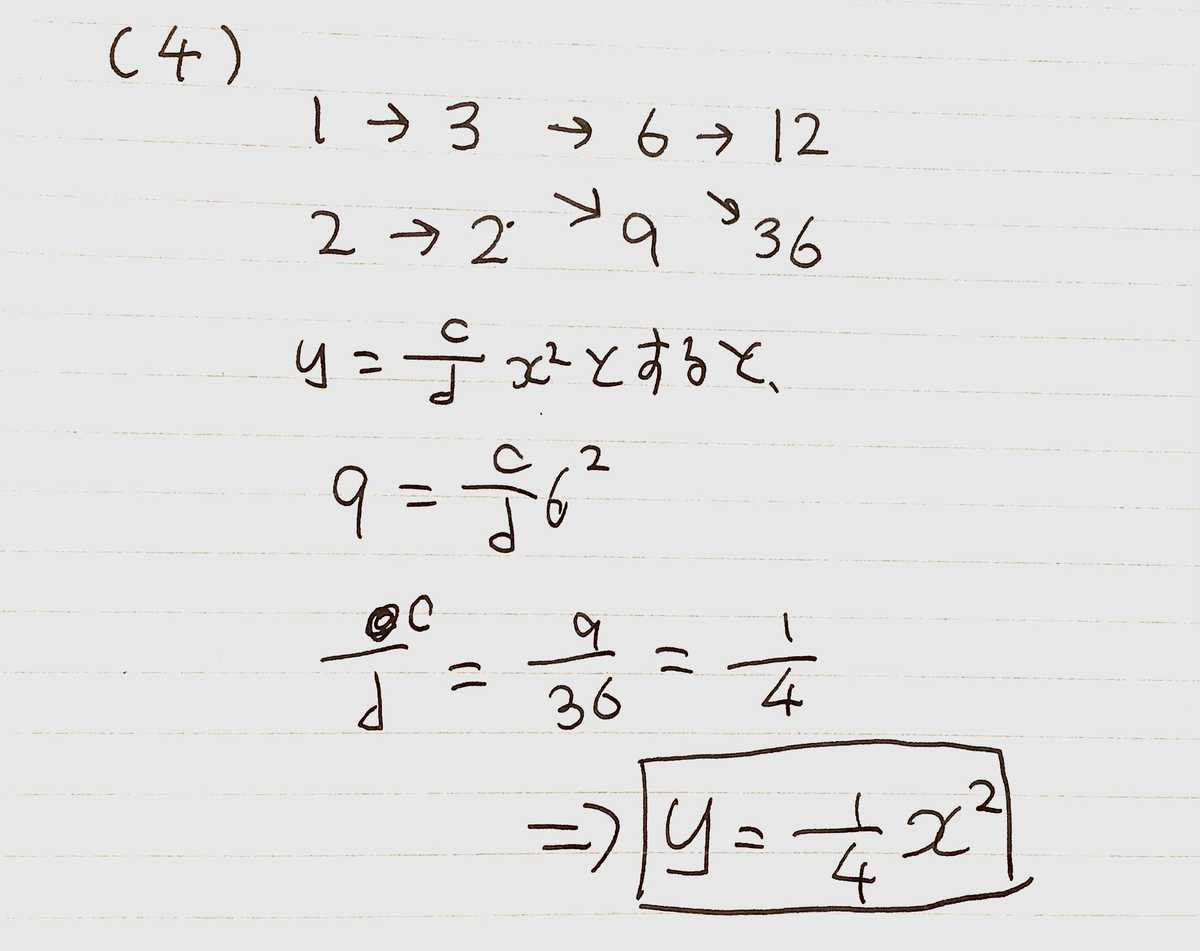 (4)
1 → 3 → 6 → 12
2 → 2 ↘ 9 ↘ 36
y = c/d x² とすると、
9 = c/d 6²
c/d = 9/36 = 1/4
⇒ y = 1/4 x²